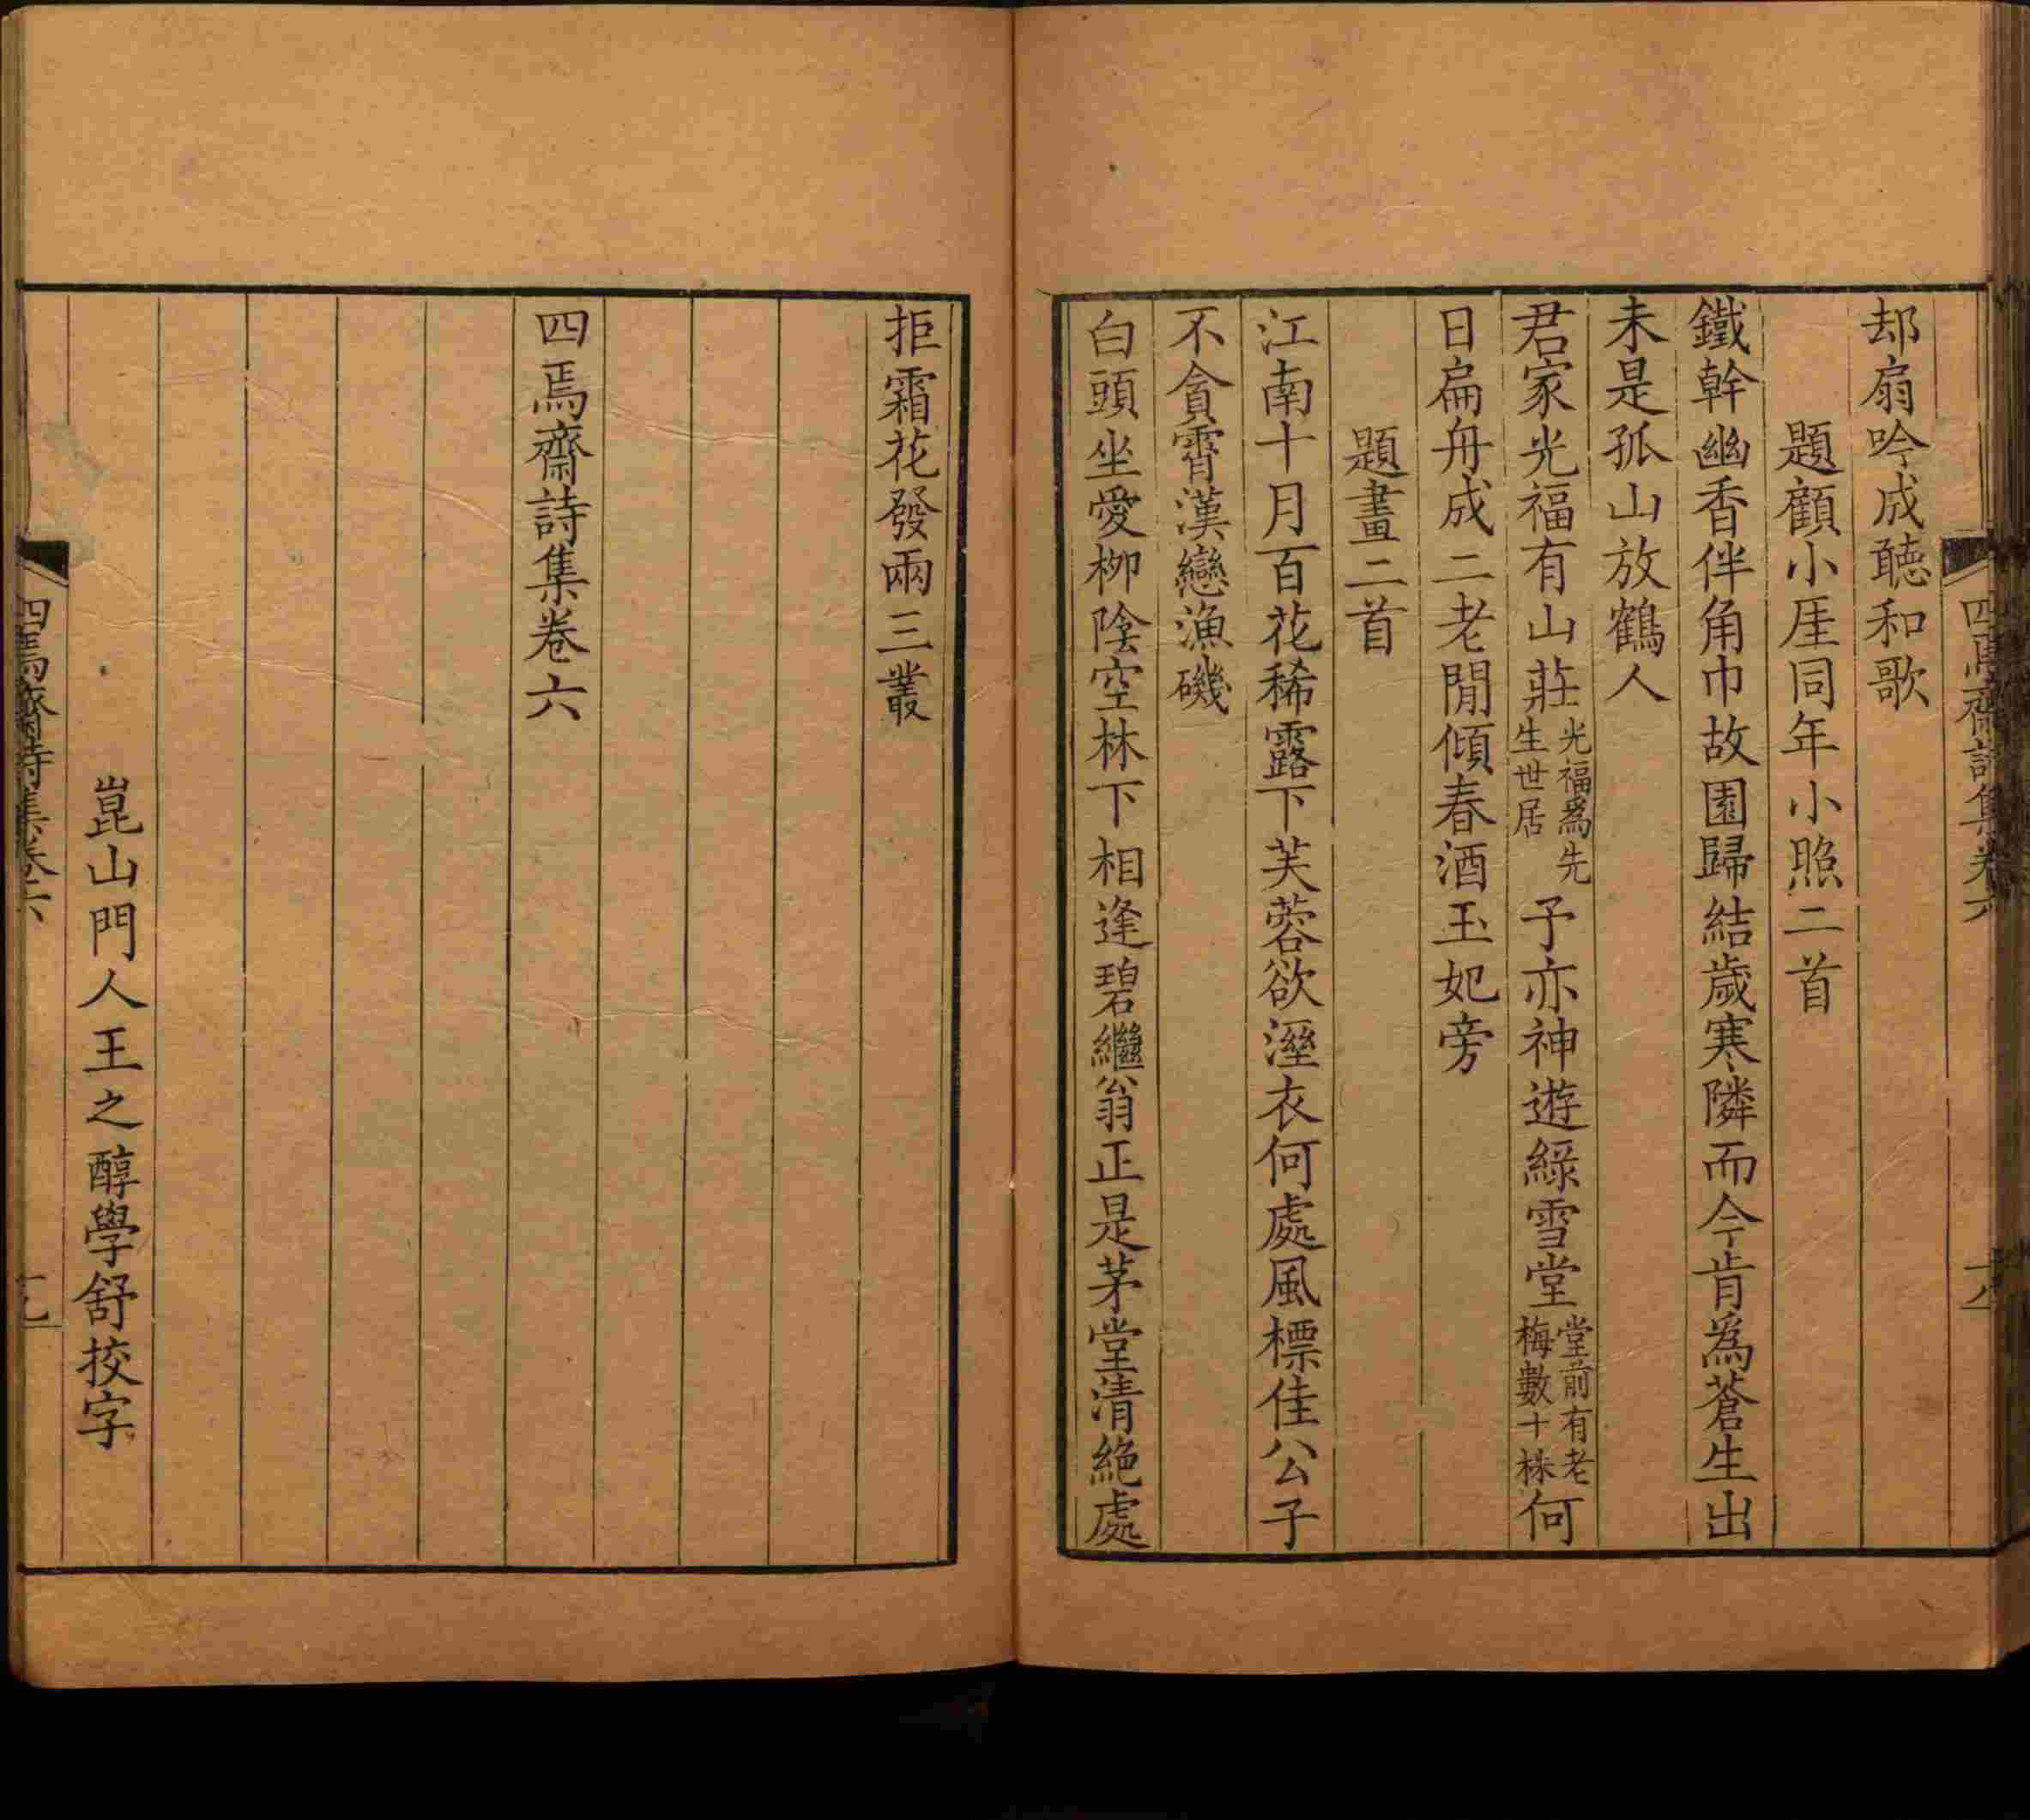 四焉齋詩集卷六
十八
却扇吟成聽和歌
題顧小厓同年小照二首
鐵幹幽香伴角巾故園歸結歲寒隣而今肯爲蒼生出
未是孤山放鶴人
君家光福有山莊光福爲先生世居予亦神遊綠雪堂堂前有老梅數十株何
日扁舟成二老閒傾春酒玉妃旁
題畫二首
江南十月百花稀露下芙蓉欲溼衣何處風標佳公子
不貪霄漢戀漁磯
白頭坐愛栁陰空林下相逢碧繼翁正是茅堂清絶處
拒霜花發兩三叢
四焉齋詩集卷六
崑山門人王之醇學舒挍字
四焉齋詩集卷六
十九